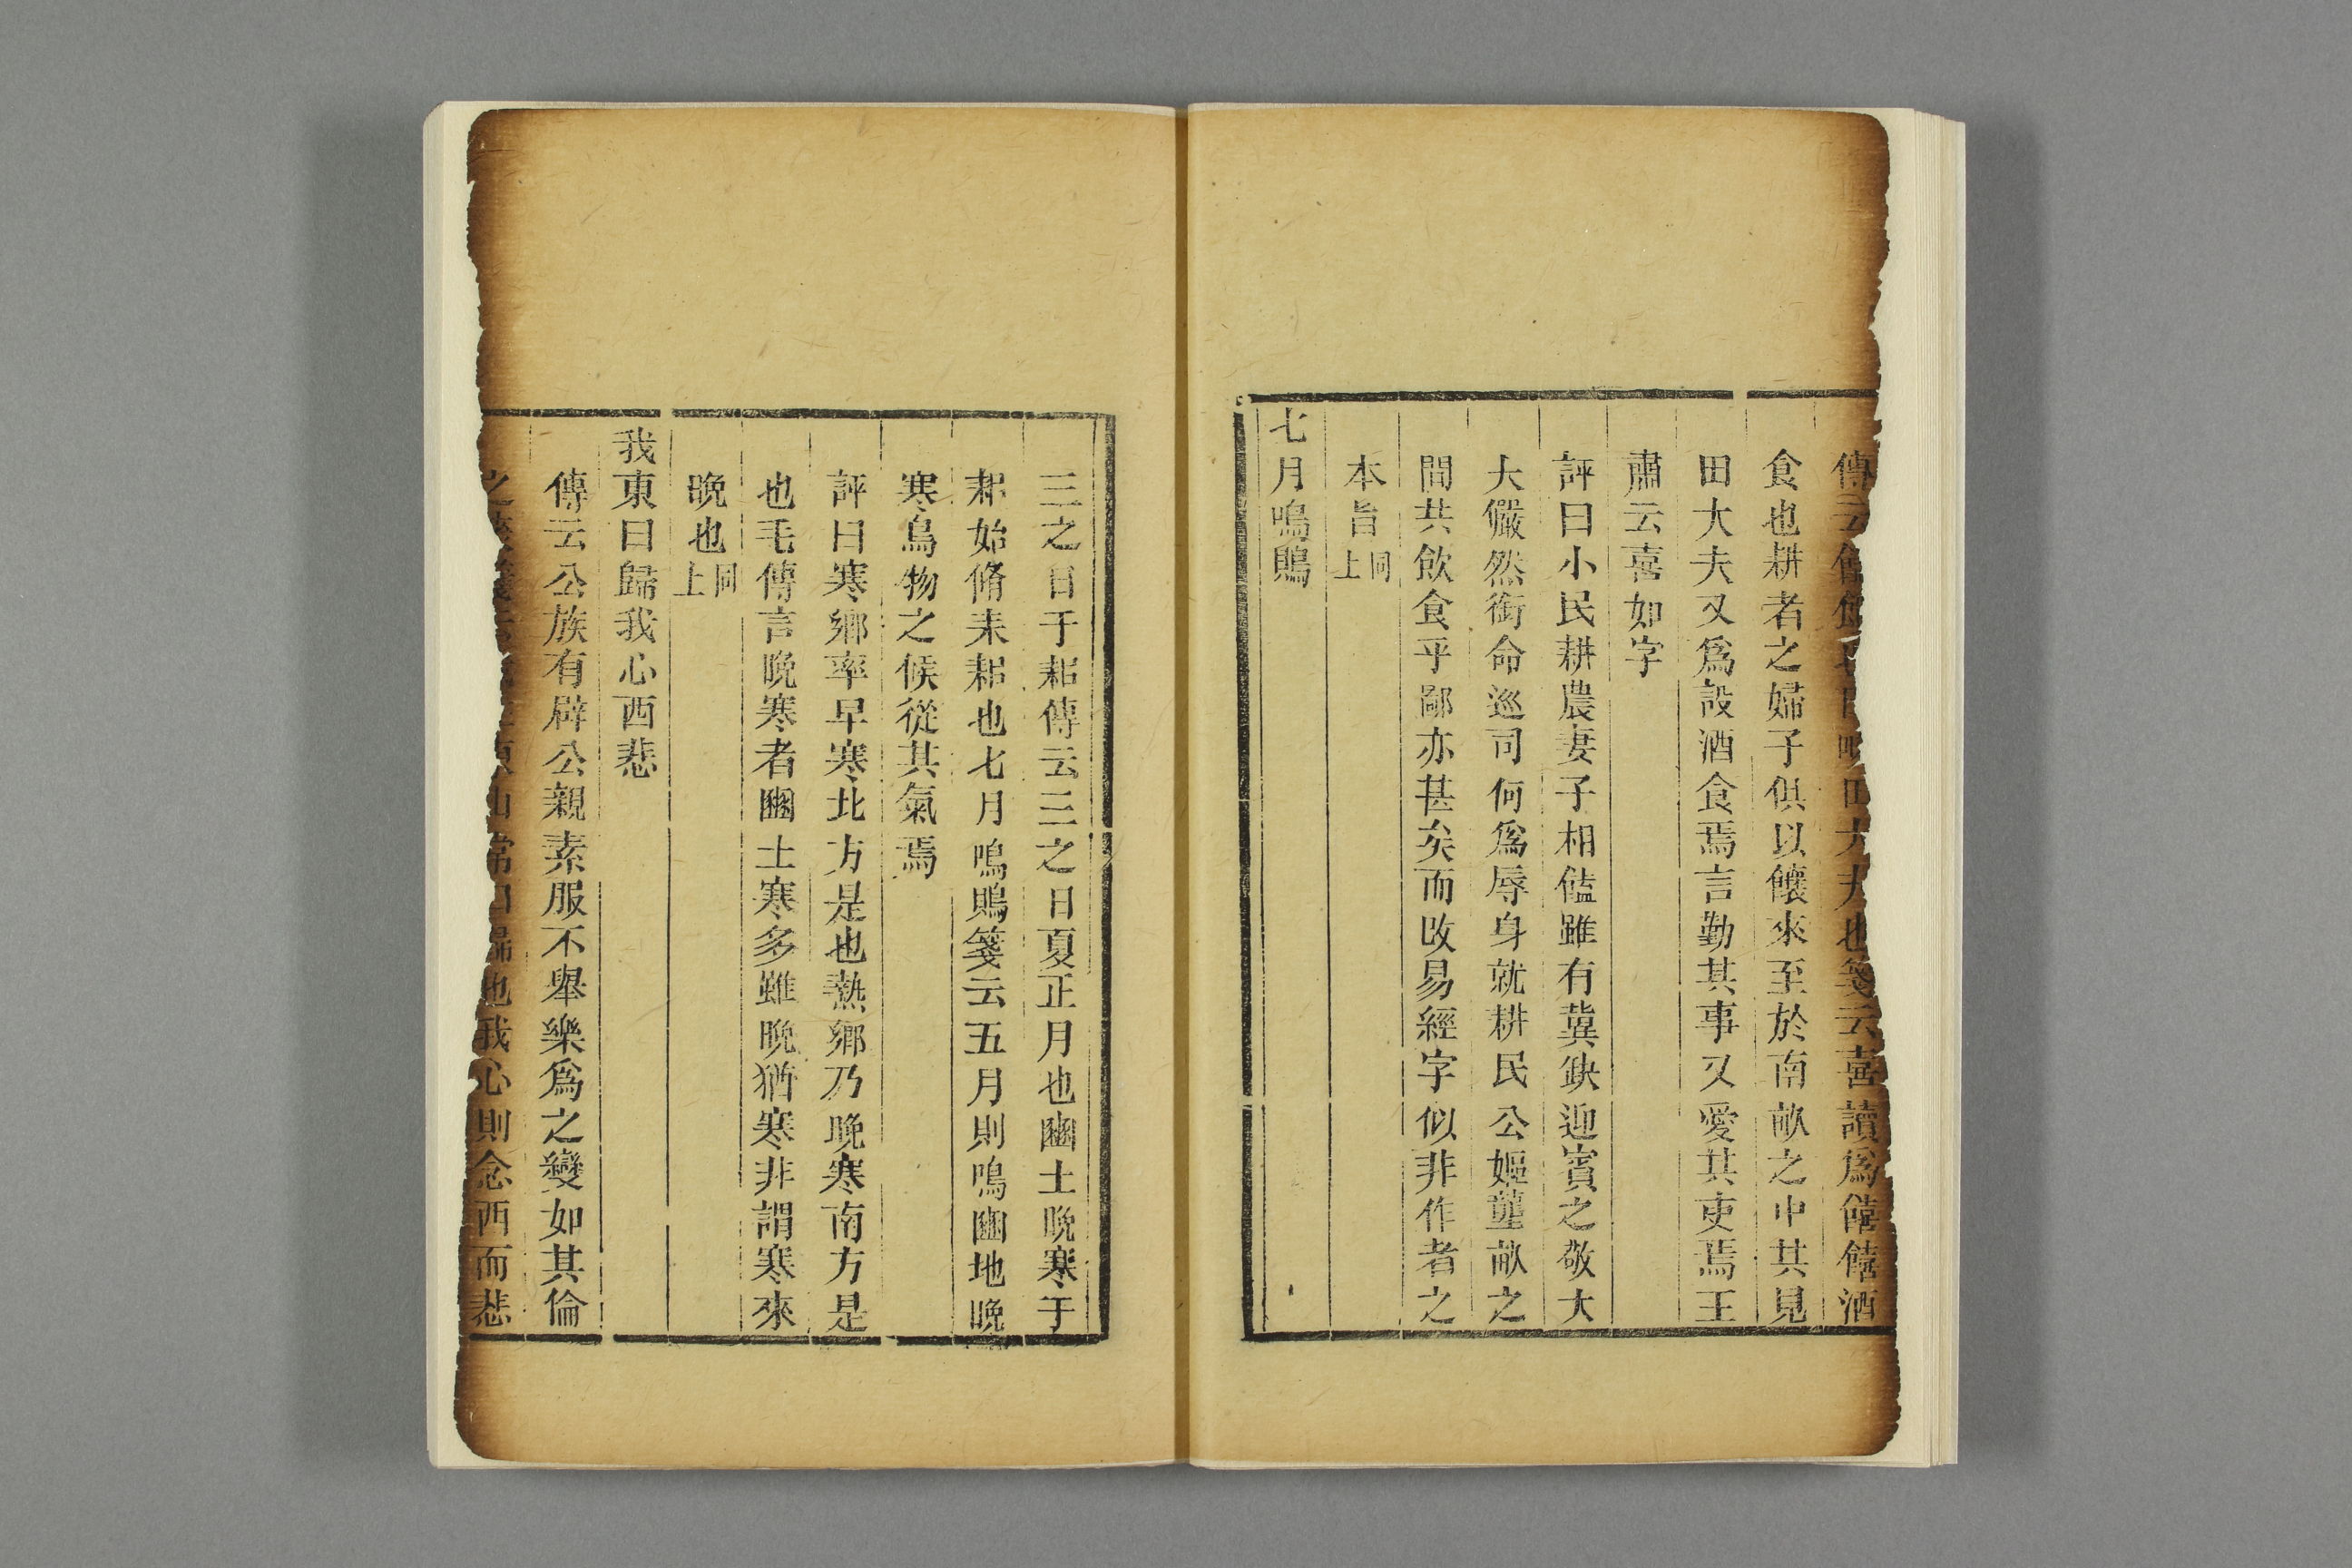 傳云饁饋也田畯田大夫也箋云喜讀爲饎饎酒
食也耕者之婦子俱以饟來至於南畝之中其見
田大夫又爲設酒食焉言勤其事又愛其吏焉王
肅云喜如字
評曰小民耕農妻子相饁雖有冀缺迎賓之敬大
大儼然銜命巡司何爲辱身就耕民公嫗壟畝之
間共飲食乎鄙亦甚矣而改易經字似非作者之
本旨同上
七月鳴鵙
三之日于耜傳云三之日夏正月也豳土晚寒于
耜始脩耒耜也七月鳴鵙箋云五月則鳴豳地晚
寒鳥物之候從其氣焉
評曰寒鄉率早寒北方是也熱鄉乃晚寒南方是
也毛傳言晚寒者豳土寒多雖晚猶寒非謂寒來
晚也同上
我東曰歸我心西悲
傳云公族有辟公親素服不舉樂爲之變如其倫
之 東山常曰歸也我心則念西而悲